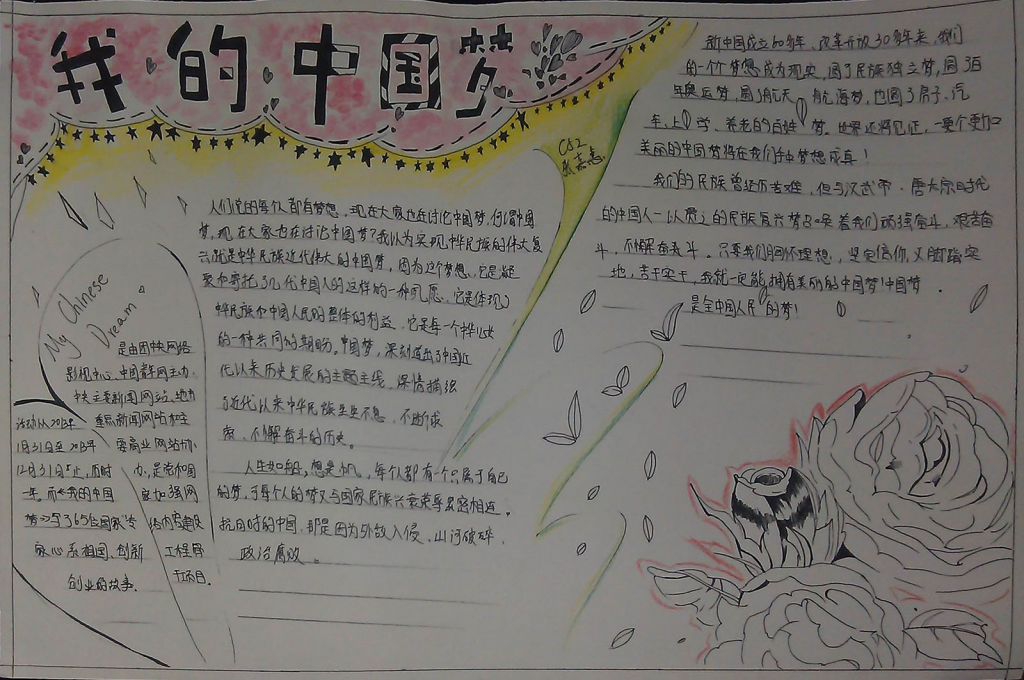 我的中国梦
人们说的每个人都有梦想，现在大家也在讨论中国梦，何谓中国
梦，现在大家也在讨论中国梦？我以为实现中华民族的伟大复
兴就是中华民族近代伟大的中国梦，因为这个梦想，它是凝
聚和寄托了几代中国人的这样的一种夙愿，它是体现了
中华民族和中国人民的整体的利益，它是每一个中华儿女
的一种共同的期盼。中国梦，深刻道出了中国近
代以来历史发展的主题主线，深情描绘
了近代以来中华民族生生不息、不断求
索、不懈奋斗的历史。
人生如船，梦想是帆，每个人都有一个只属于自己
的梦，于每个人的梦又与国家民族兴衰荣辱紧密相连。
抗日时的中国，那是因为外敌入侵，山河破碎，
政治腐败。
My Chinese
Dream
是由团中央网络
影视中心、中国青年网主办，
中央主要新闻网站、地方
重点新闻网站和全
要商业网站协
办，是党和国
家加强网
络内容建设
工程有
干项目。
活动从2013年
1月31日至2013年
12月31日止，历时
一年。而《我的中国
梦》写了365位国家专
家心系祖国、创新
创业的故事。
C82
新中国成立60多年，改革开放30多年来，我们
的一个个梦想成为现实，圆了民族独立梦，圆了百
年奥运梦，圆了航天、航海梦，也圆了房子、汽
车、上学、养老的百姓梦。世界还将见证，一个个更加
美丽的中国梦将在我们手中梦想成真！
我们的民族曾经历苦难，但与汉武帝、唐太宗时代
的中国人一以贯之的民族复兴梦召唤着我们顽强奋斗，艰苦奋
斗，不懈奋斗。只要我们胸怀理想，坚定信仰，又脚踏实
地，苦干实干，我就一定能拥有美丽的中国梦！中国梦，
是全中国人民的梦！